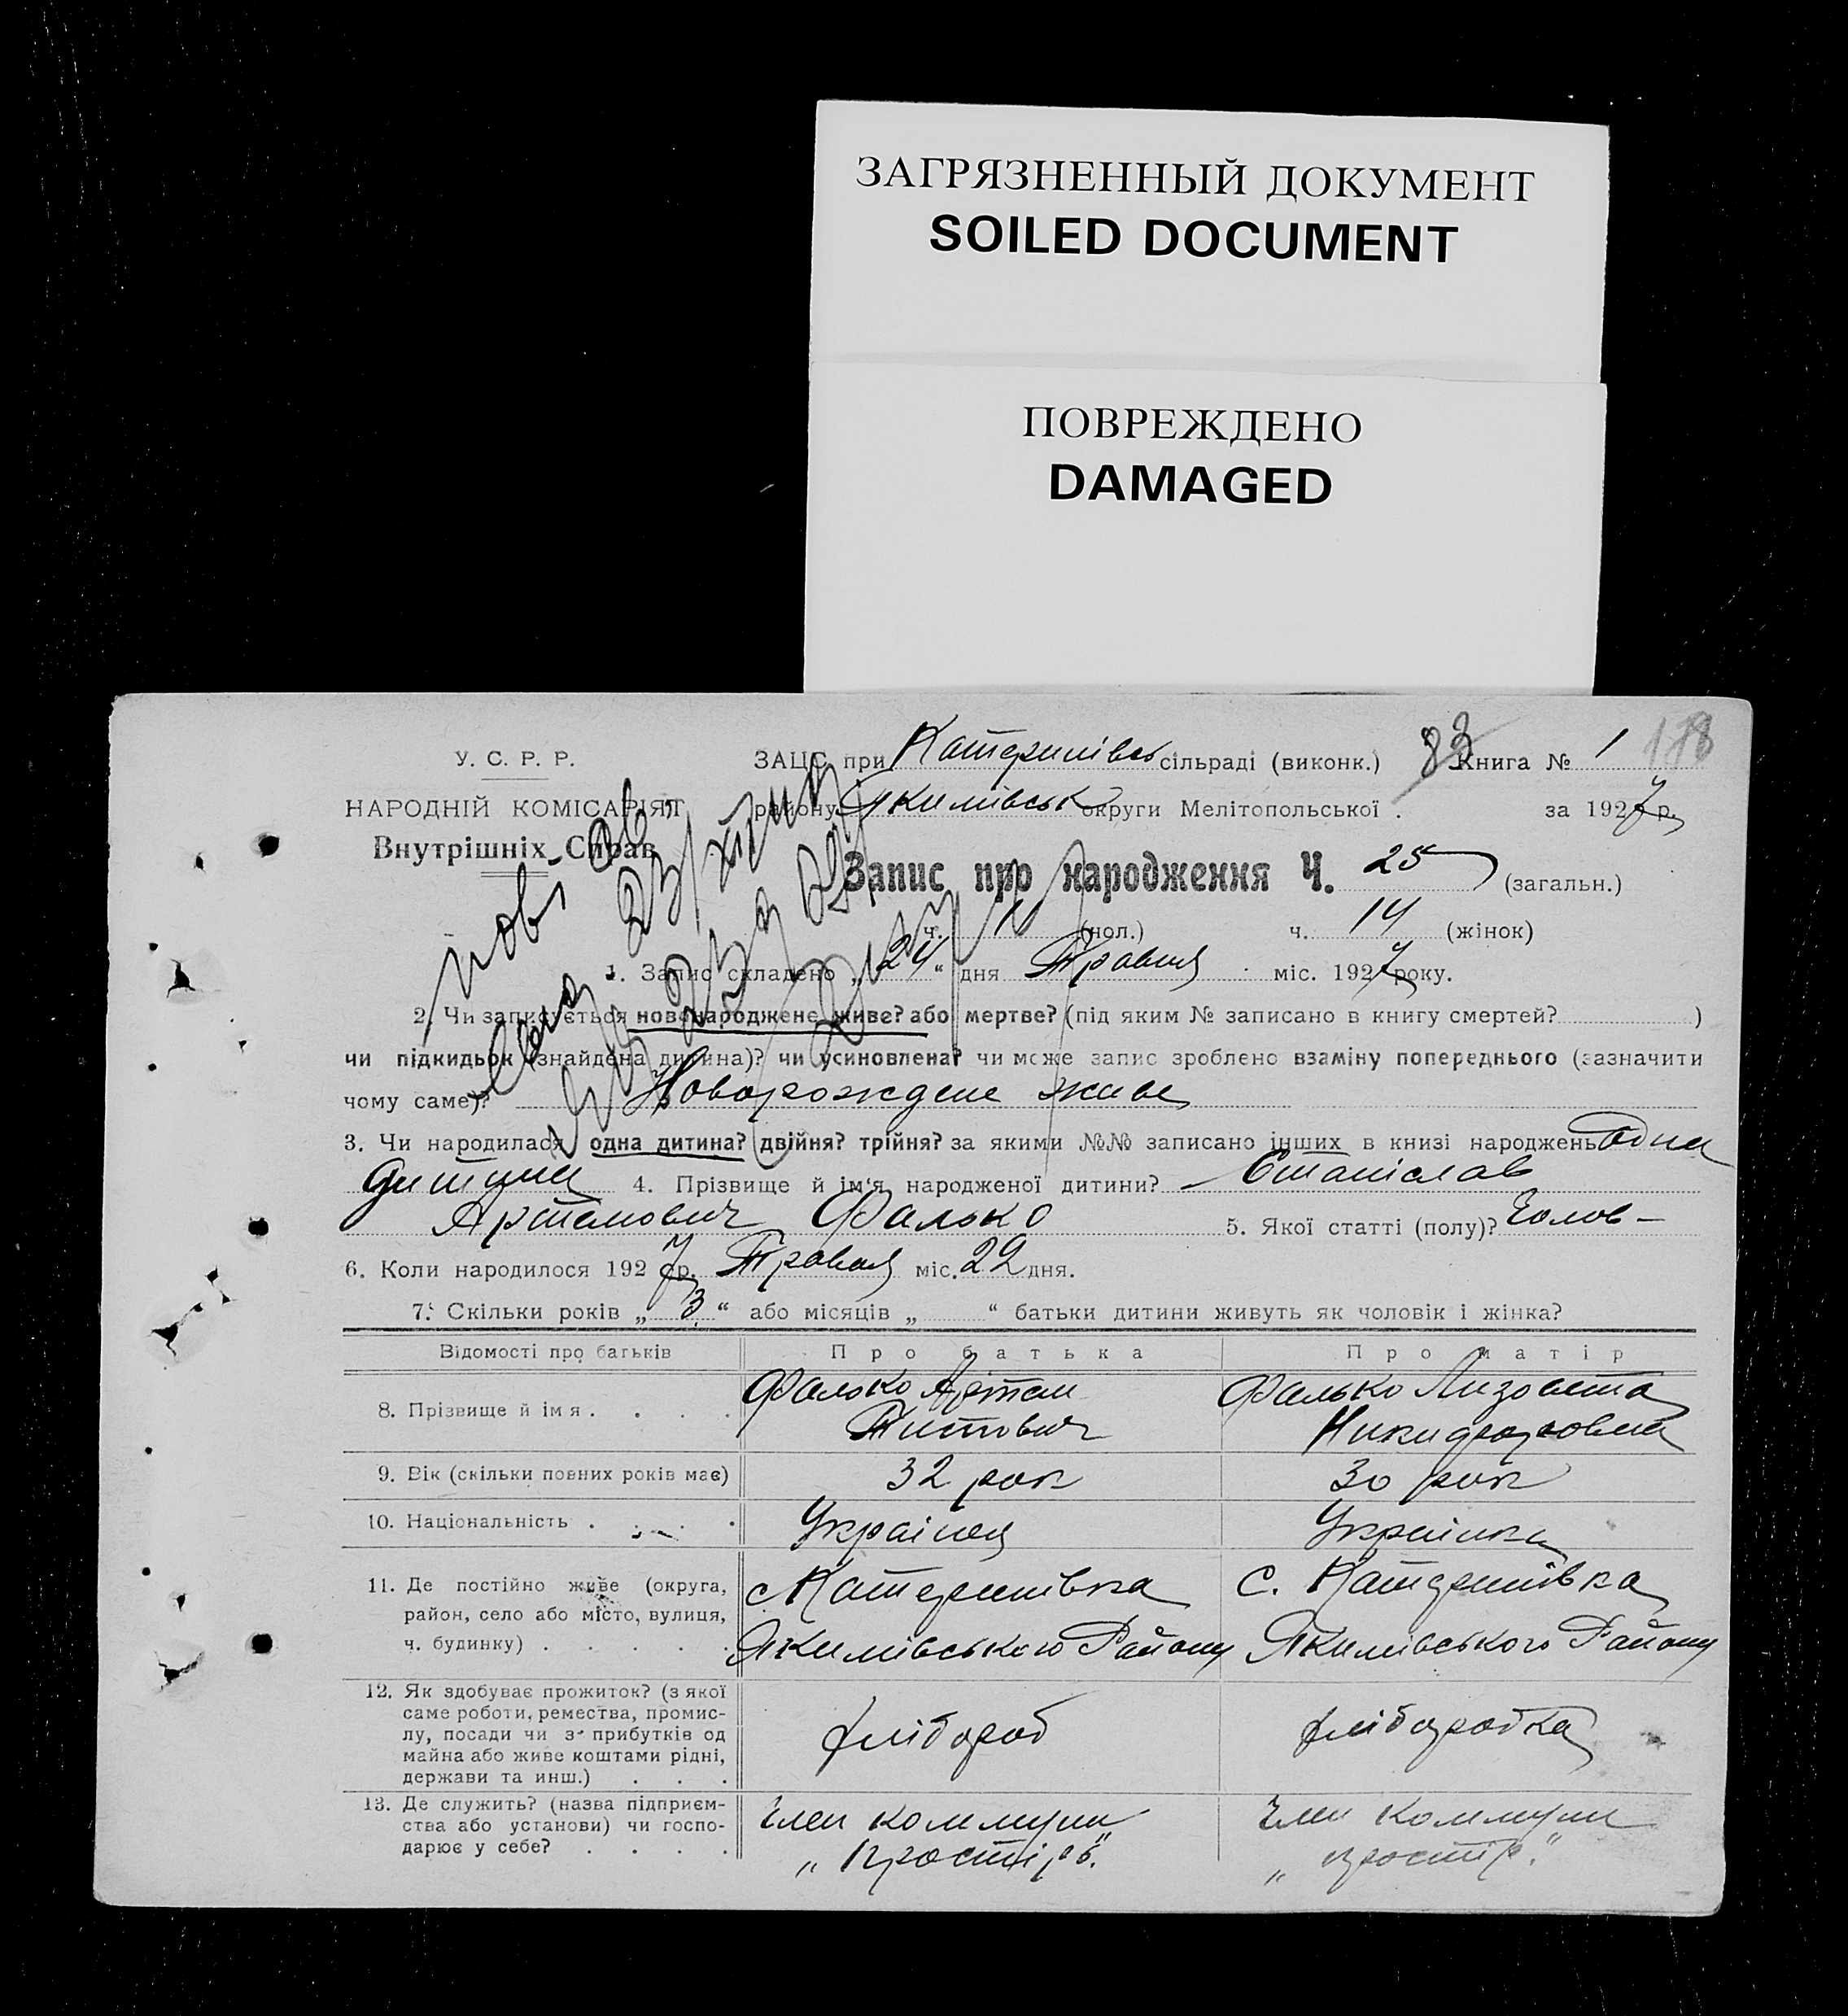 ЗАГРЯЗНЕННЫЙ ДОКУМЕНТ
SOILED DOCUMENT
ПОВРЕЖДЕНО
DAMAGED
У. С. Р. Р.
НАРОДНІЙ КОМІСАРІЯТ
Внутрішніх Справ
ЗАЦС при Катеринівсь сільраді (виконк.) Книга № 1 118
району Якимівськ округи Мелітопольської . за 1927 р.
Запис про народження Ч. 25 (загальн.)
ч. 11 (чол.) ч. 14 (жінок)
1. Запис складено „ 24 “ дня Травня міс. 1927 року.
2. Чи записується новонароджене живе? або мертве? (під яким № записано в книгу смертей? )
чи підкидьок (знайдена дитина)? чи усиновлена? чи може запис зроблено взаміну попереднього (зазначити
чому саме)? Новорожденe живе
3. Чи народилася одна дитина? двійня? трійня? за якими №№ записано інших в книзі народжень одна
дитина 4. Прізвище й ім'я народженої дитини? Станіслав
Артемович Фалько 5. Якої статті (полу)? Чолов-
6. Коли народилося 1927 р. Травня міс. 22 дня.
7. Скільки років „ 3 “ або місяців „ “ батьки дитини живуть як чоловік і жінка?
Відомості про батьків Про батька Про матір
8. Прізвище й імя . . . . Фалько Артем Фалько Лизовета
Титович Никифоровна
9. Вік (скільки повних років має) 32 рок 30 рок
10. Національність . . . . Українец Українка
11. Де постійно живе (округа, с Катеринівка с. Катеринівка
район, село або місто, вулиця,
ч. будинку) . . . . . Якимівського Району Якимівського Району
12. Як здобуває прожиток? (з якої
саме роботи, ремества, промис-
лу, посади чи з прибутків од хлібороб хліборобка
майна або живе коштами рідні,
держави та инш.) . . .
13. Де служить? (назва підприєм- Член коммуни Член коммуни
ства або установи) чи госпо-
дарює у себе? . . . . „Простірь." „простір."